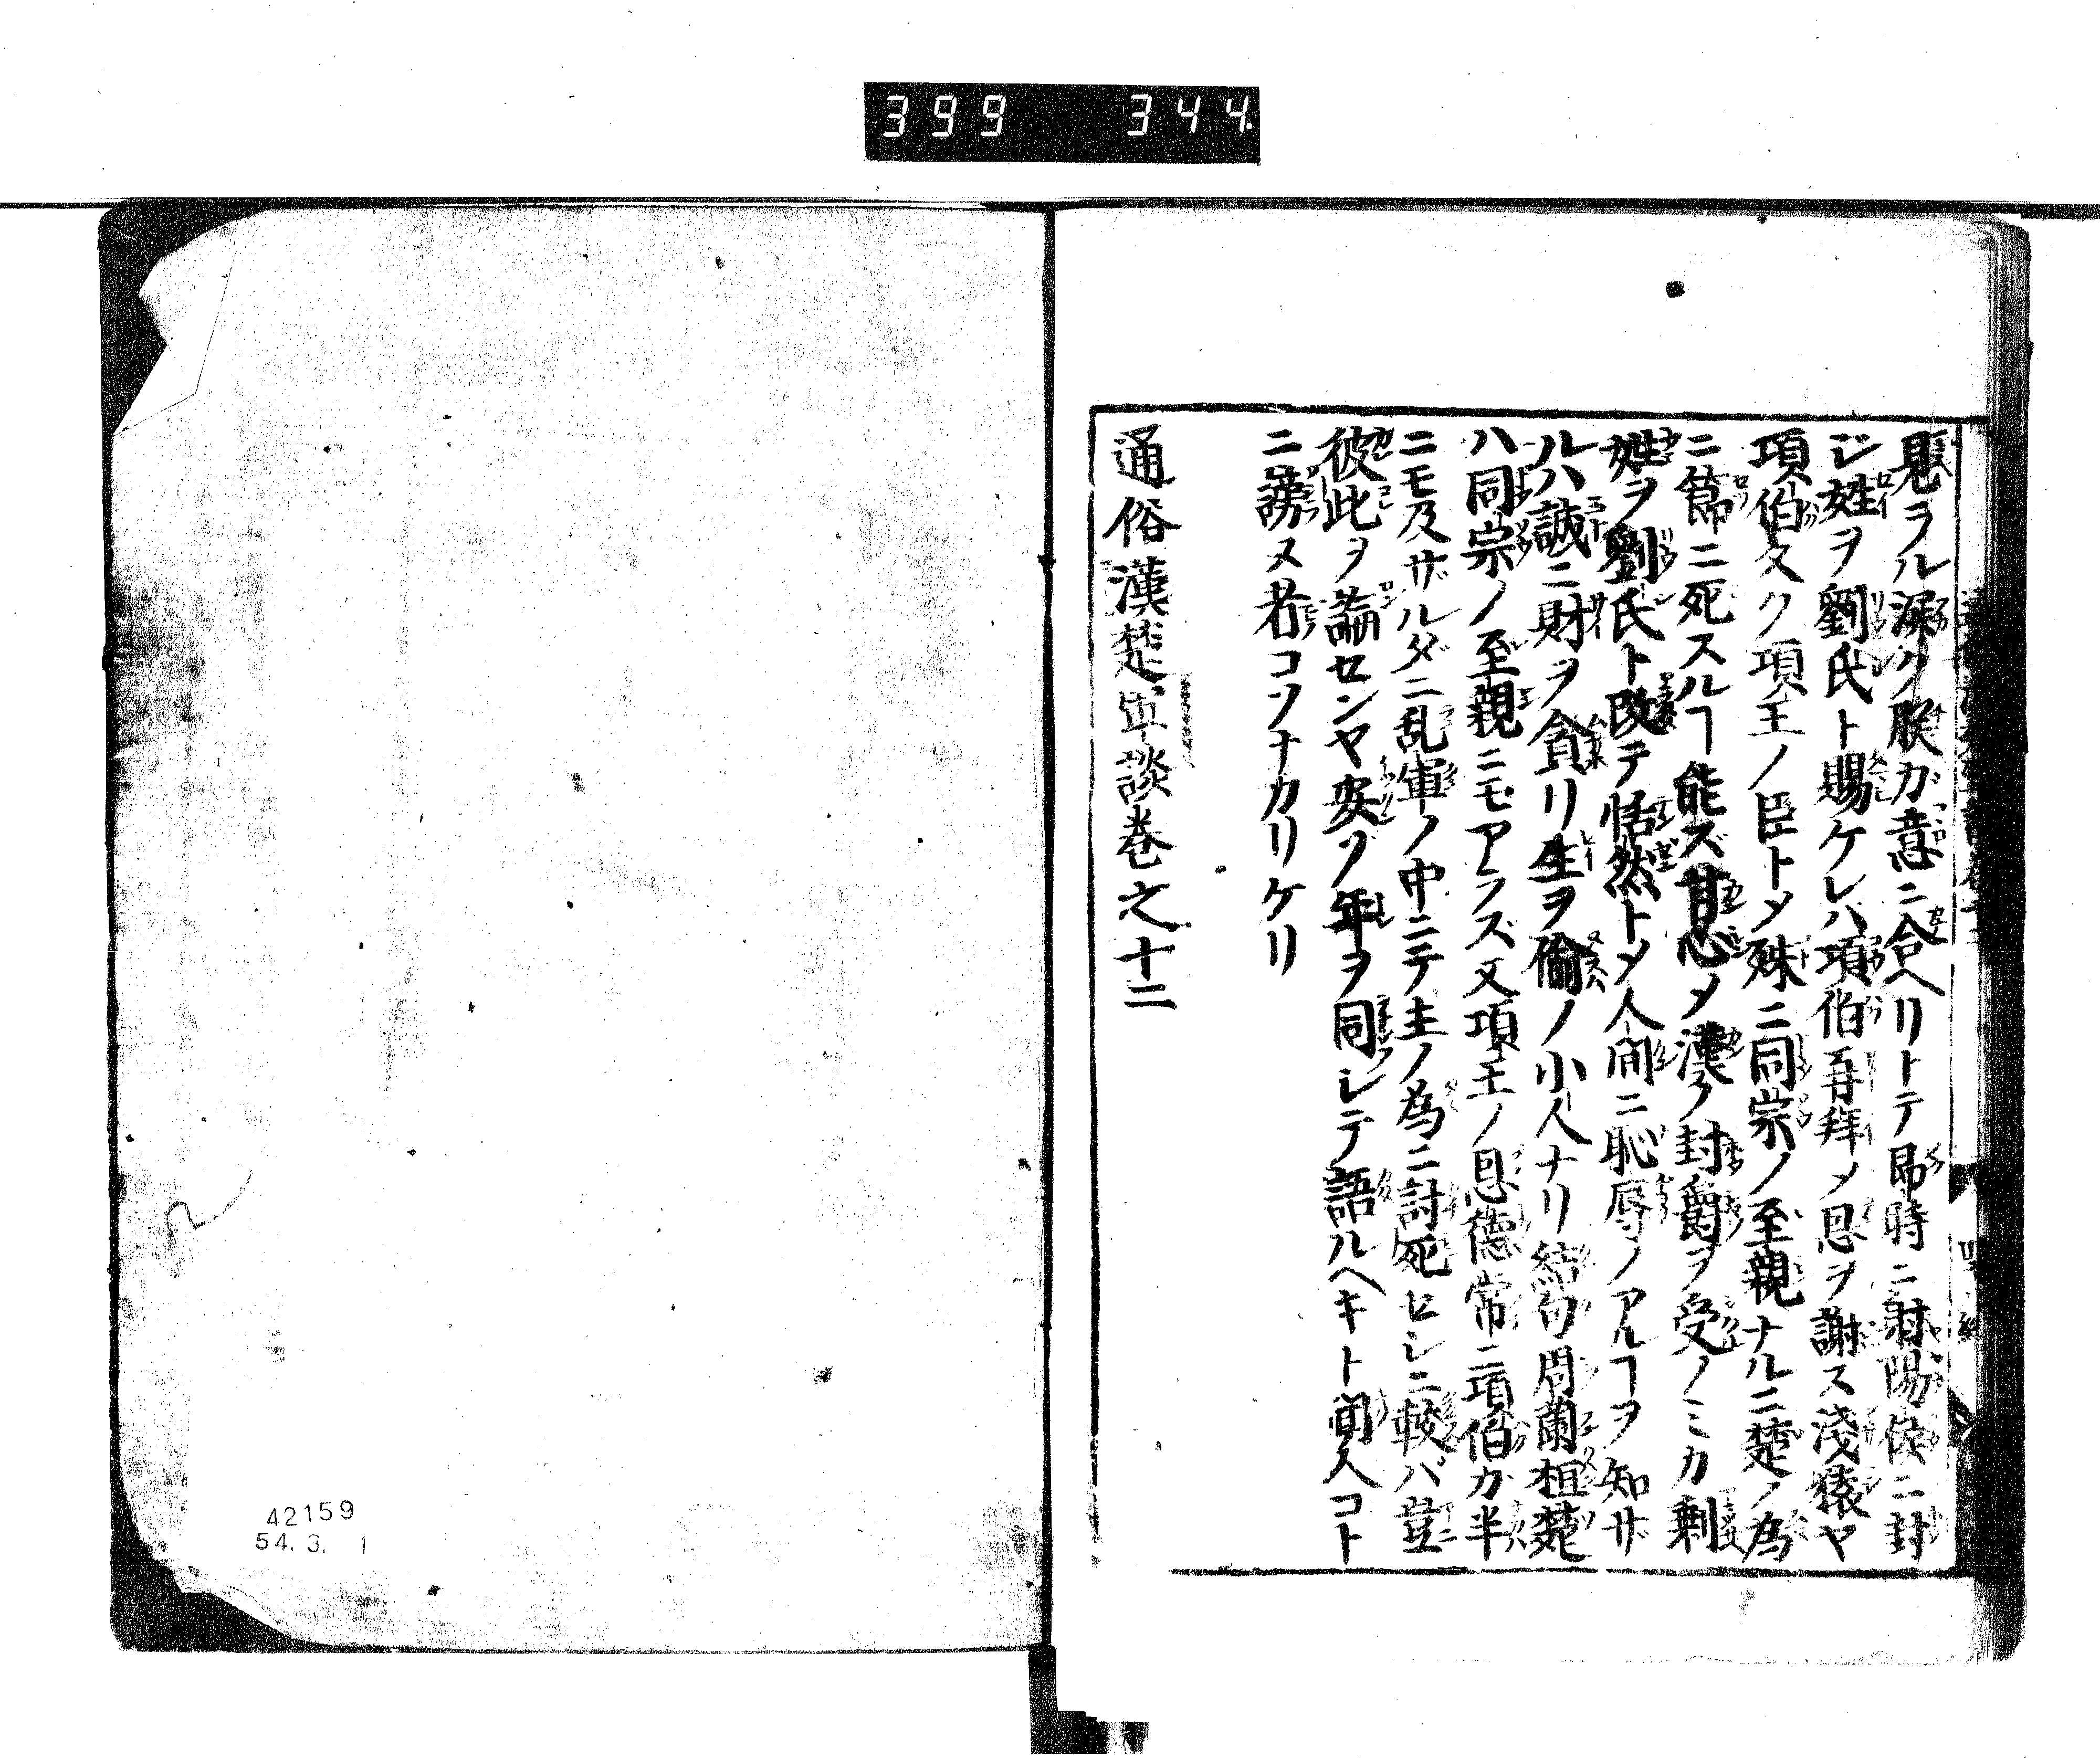 399 344
見ラル深ク朕ガ意ニ合ヘリトテ即時ニ射陽侯ニ封
ジ姓ヲ劉氏ト賜ケレバ項伯再拜メ恩ヲ謝ス淺猿ヤ
項伯久ク項王ノ臣トメ殊ニ同宗ノ至親ナルニ楚ノ為
ニ節ニ死スルヿ能ズ甘心メ漢ノ封爵ヲ受ノミカ剰
姓ヲ劉氏ト改テ恬然トメ人間ニ恥辱ノアルヿヲ知ザ
ルハ誠ニ財ヲ貪リ生ヲ偷ノ小人ナリ結句周蘭桓楚
ハ同宗ノ至親ニモアラズ又項王ノ恩德常ニ項伯カ半
ニモ及ザルダニ乱軍ノ中ニテ主ノ為ニ討死セシニ較バ豈
彼此ヲ論センヤ安ゾ年ヲ同シテ語ルヘキト聞人コト
ニ謗ヌ者コソナカリケリ
通俗漢楚軍談巻之十二
42159
54. 3. 1